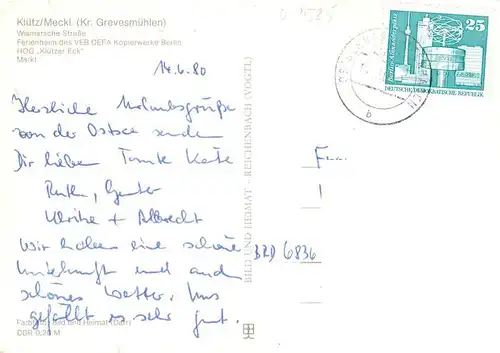 Klütz/Meckl. (Kr. Grevesmühlen)
Wismarsche Straße
Ferienheim des VEB DEFA Kopierwerke Berlin
HOG „Klützer Eck"
Markt
14.6.80
Herzliche Urlaubsgrüße
von der Ostsee senden
Dir lieben Tante Käte
Ruth, Günter
Ulrike + Albrecht
Wir haben eine schöne
Unterkunft und auch
schönes Wetter. Uns
gefällt es sehr gut.
Bild und Heimat
DDR 0,20 M
BILD UND HEIMAT · REICHENBACH (VOGTL)
25
DEUTSCHE DEMOKRATISCHE REPUBLIK
b
BRD 6836